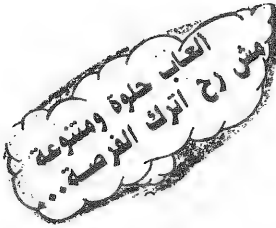 العاب حلوة ومتنوعة
مش رح اترك الفرصة..